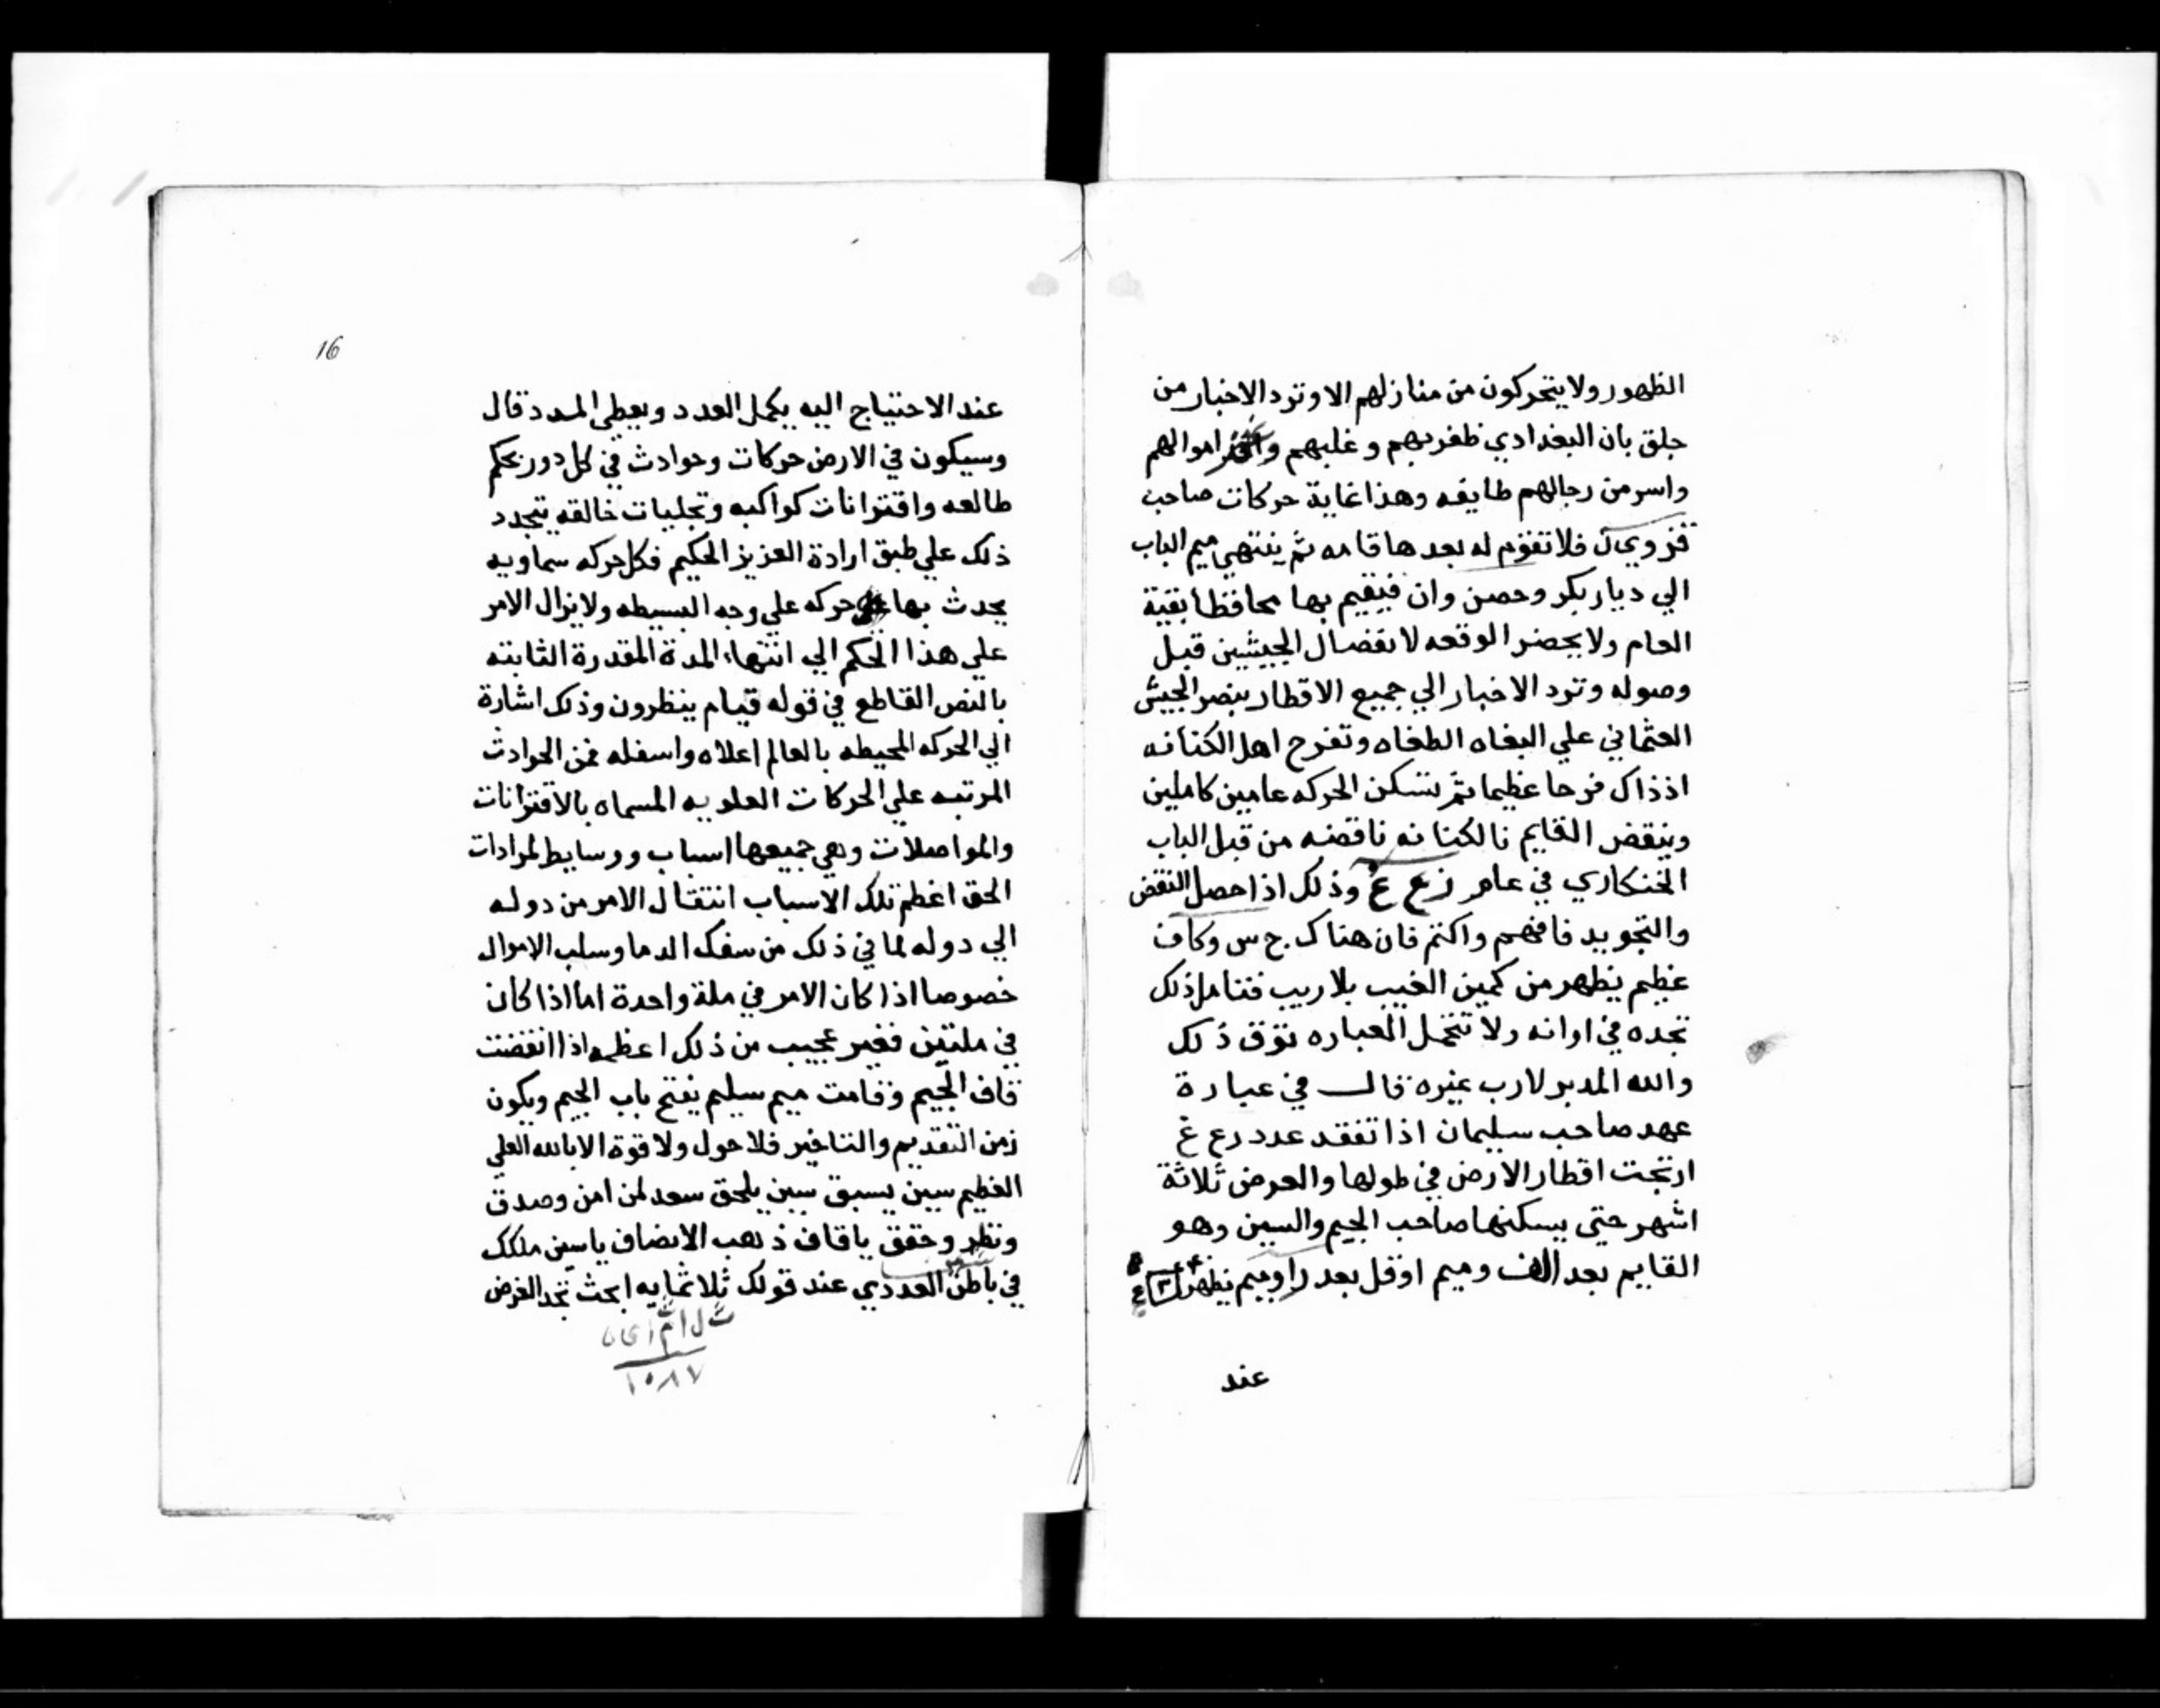 الظهور ولا يتحركون من منازلهم الا وترد الاخبار من
جلق بان البغدادي ظفر بهم و غلبهم اموالهم
واسر من رجالهم طايفه وهذا غاية حركات صاحب
قزوين فلا تقوم له بعدها قامه ثم ينتهي ميم الباب
الي ديار بكر وحصن وان فيقيم بها محافظا بقية
العام ولا يحضر الوقعه لانفصال الجيشين قبل
وصوله وترد الاخبار الي جميع الاقطار بنصر الجيش
العثماني علي البغاه الطغاه وتفرح اهل الكنانه
اذ ذاك فرحا عظيما ثم تسكن الحركه عامين كاملين
وينقض القايم نالكنانه ناقضه من قبل الباب
الخنكاري في عام زع غ وذلك اذا حصل النقض
والتجويد فافهم واكتم فان هناك ج س وكاف
عظيم يظهر من كمين الغيب بلا ريب فتامل ذلك
تجده في اوانه ولا تتحمل العباره فوق ذلك
والله المدبر لا رب غيره قال في عبارة
عهد صاحب سليمان اذا تفقد عدد رع غ
ارتجت اقطار الارض في طولها والعرض ثلاثة
اشهر حتى يسكنها صاحب الجيم والسين وهو
القايم بعد الف وميم اوقل بعد را وميم يظهر
عند
16
عند الاحتياج اليه يكمل العدد ويعطي المدد قال
وسيكون في الارض حركات وحوادث في كل دور بحكم
طالعه واقترانات كواكبه وتجليات خالقه يتجدد
ذلك علي طبق ارادة العزيز الحكيم فكل حركه سماويه
يحدث بها حركه علي وجه البسيطه ولا يزال الامر
علي هذا الحكم الي انتهاء المدة المقدرة الثابته
بالنص القاطع في قوله قيام ينظرون وذلك اشارة
الي الحركه المحيطه بالعالم اعلاه واسفله فمن الحوادث
المرتبه علي الحركات العلويه المسماه بالاقترانات
والمواصلات وهي جميعها اسباب ووسايط لمرادات
الحق اعظم تلك الاسباب انتقال الامر من دوله
الي دوله لما في ذلك من سفك الدما وسلب الاموال
خصوصا اذا كان الامر في ملة واحدة اما اذا كان
في ملتين فغير عجيب من ذلك اعظمه اذا انقضت
قاف الجيم وقامت ميم سليم يفتح باب الجيم ويكون
زمن التقديم والتاخير فلا حول ولا قوة الا بالله العلي
العظيم سين يسبق سين يلحق سعد لمن امن وصدق
ونظر وحقق ياقاف ذهب الانصاف ياسين ملكك
في باطن العددي عند قولك ثلاثمايه ابحث تجد الغرض
١٠٨٧